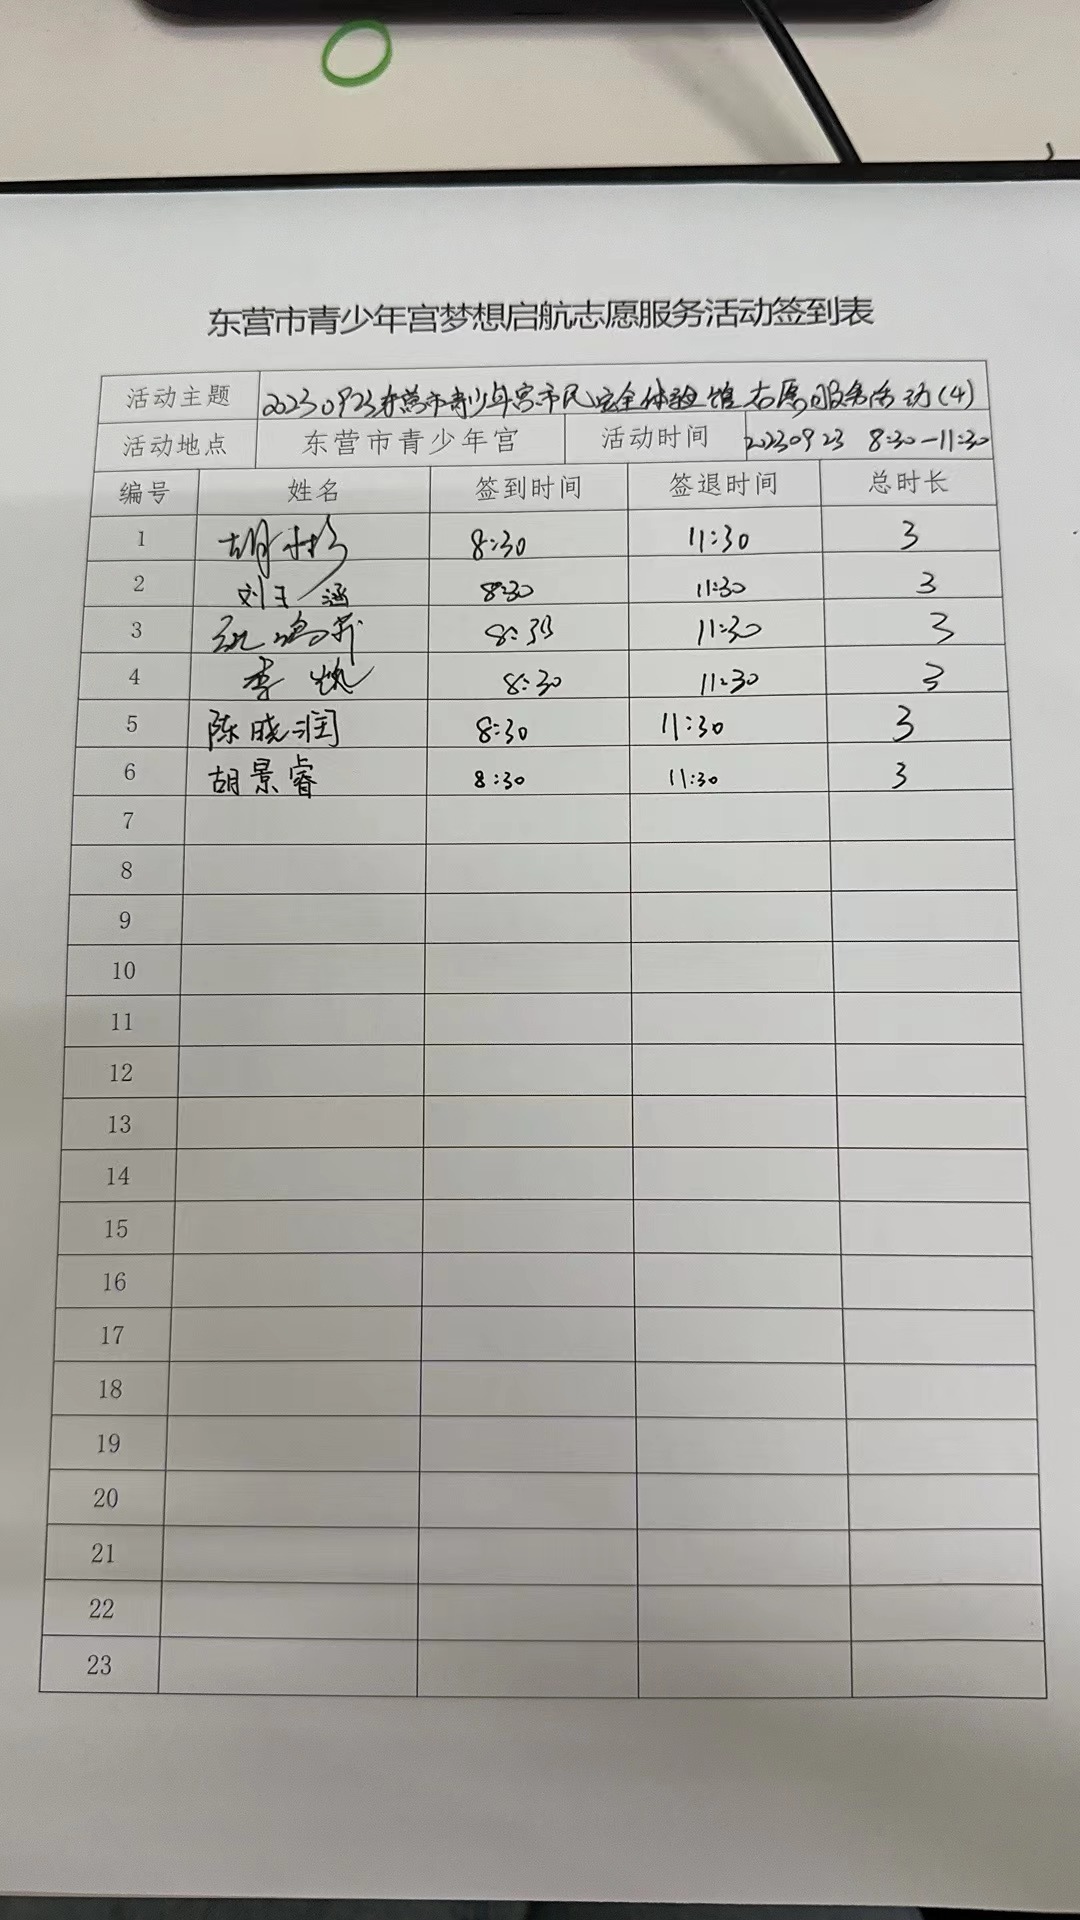 东营市青少年宫梦想启航志愿服务活动签到表
活动主题 20230923东营市青少年宫市民安全体验馆志愿服务活动(4)
活动地点 东营市青少年宫 活动时间 20230923 8:30-11:30
编号 姓名 签到时间 签退时间 总时长
1 胡 8:30 11:30 3
2 刘玉涵 8:30 11:30 3
3 8:30 11:30 3
4 李 8:30 11:30 3
5 陈晓润 8:30 11:30 3
6 胡景睿 8:30 11:30 3
7
8
9
10
11
12
13
14
15
16
17
18
19
20
21
22
23